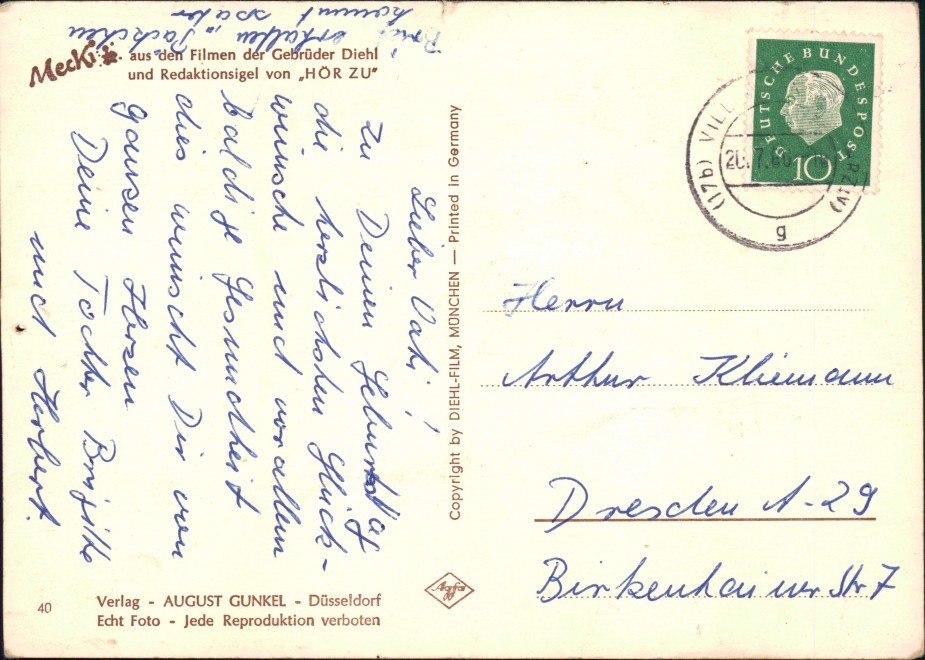 Mecki aus den Filmen der Gebrüder Diehl
und Redaktionsigel von „HÖR ZU"
Lieber Vati,
zu Deinen Geburtstag
die herlichsten Glück-
wünsche und vor allem
baldige Gesundheit
dies wünscht Dir von
ganzen Herzen
Deine Tochter Brigitte
und Herbert.
Brief erhalten, Päckchen
kommt später
Copyright by DIEHL-FILM, MÜNCHEN — Printed in Germany
Agfa
40
Verlag - AUGUST GUNKEL - Düsseldorf
Echt Foto - Jede Reproduktion verboten
DEUTSCHE BUNDESPOST
10
(17b) VILL
g
Herrn
Arthur Kliemann
Dresden A-29
Birkenhainer Str 7